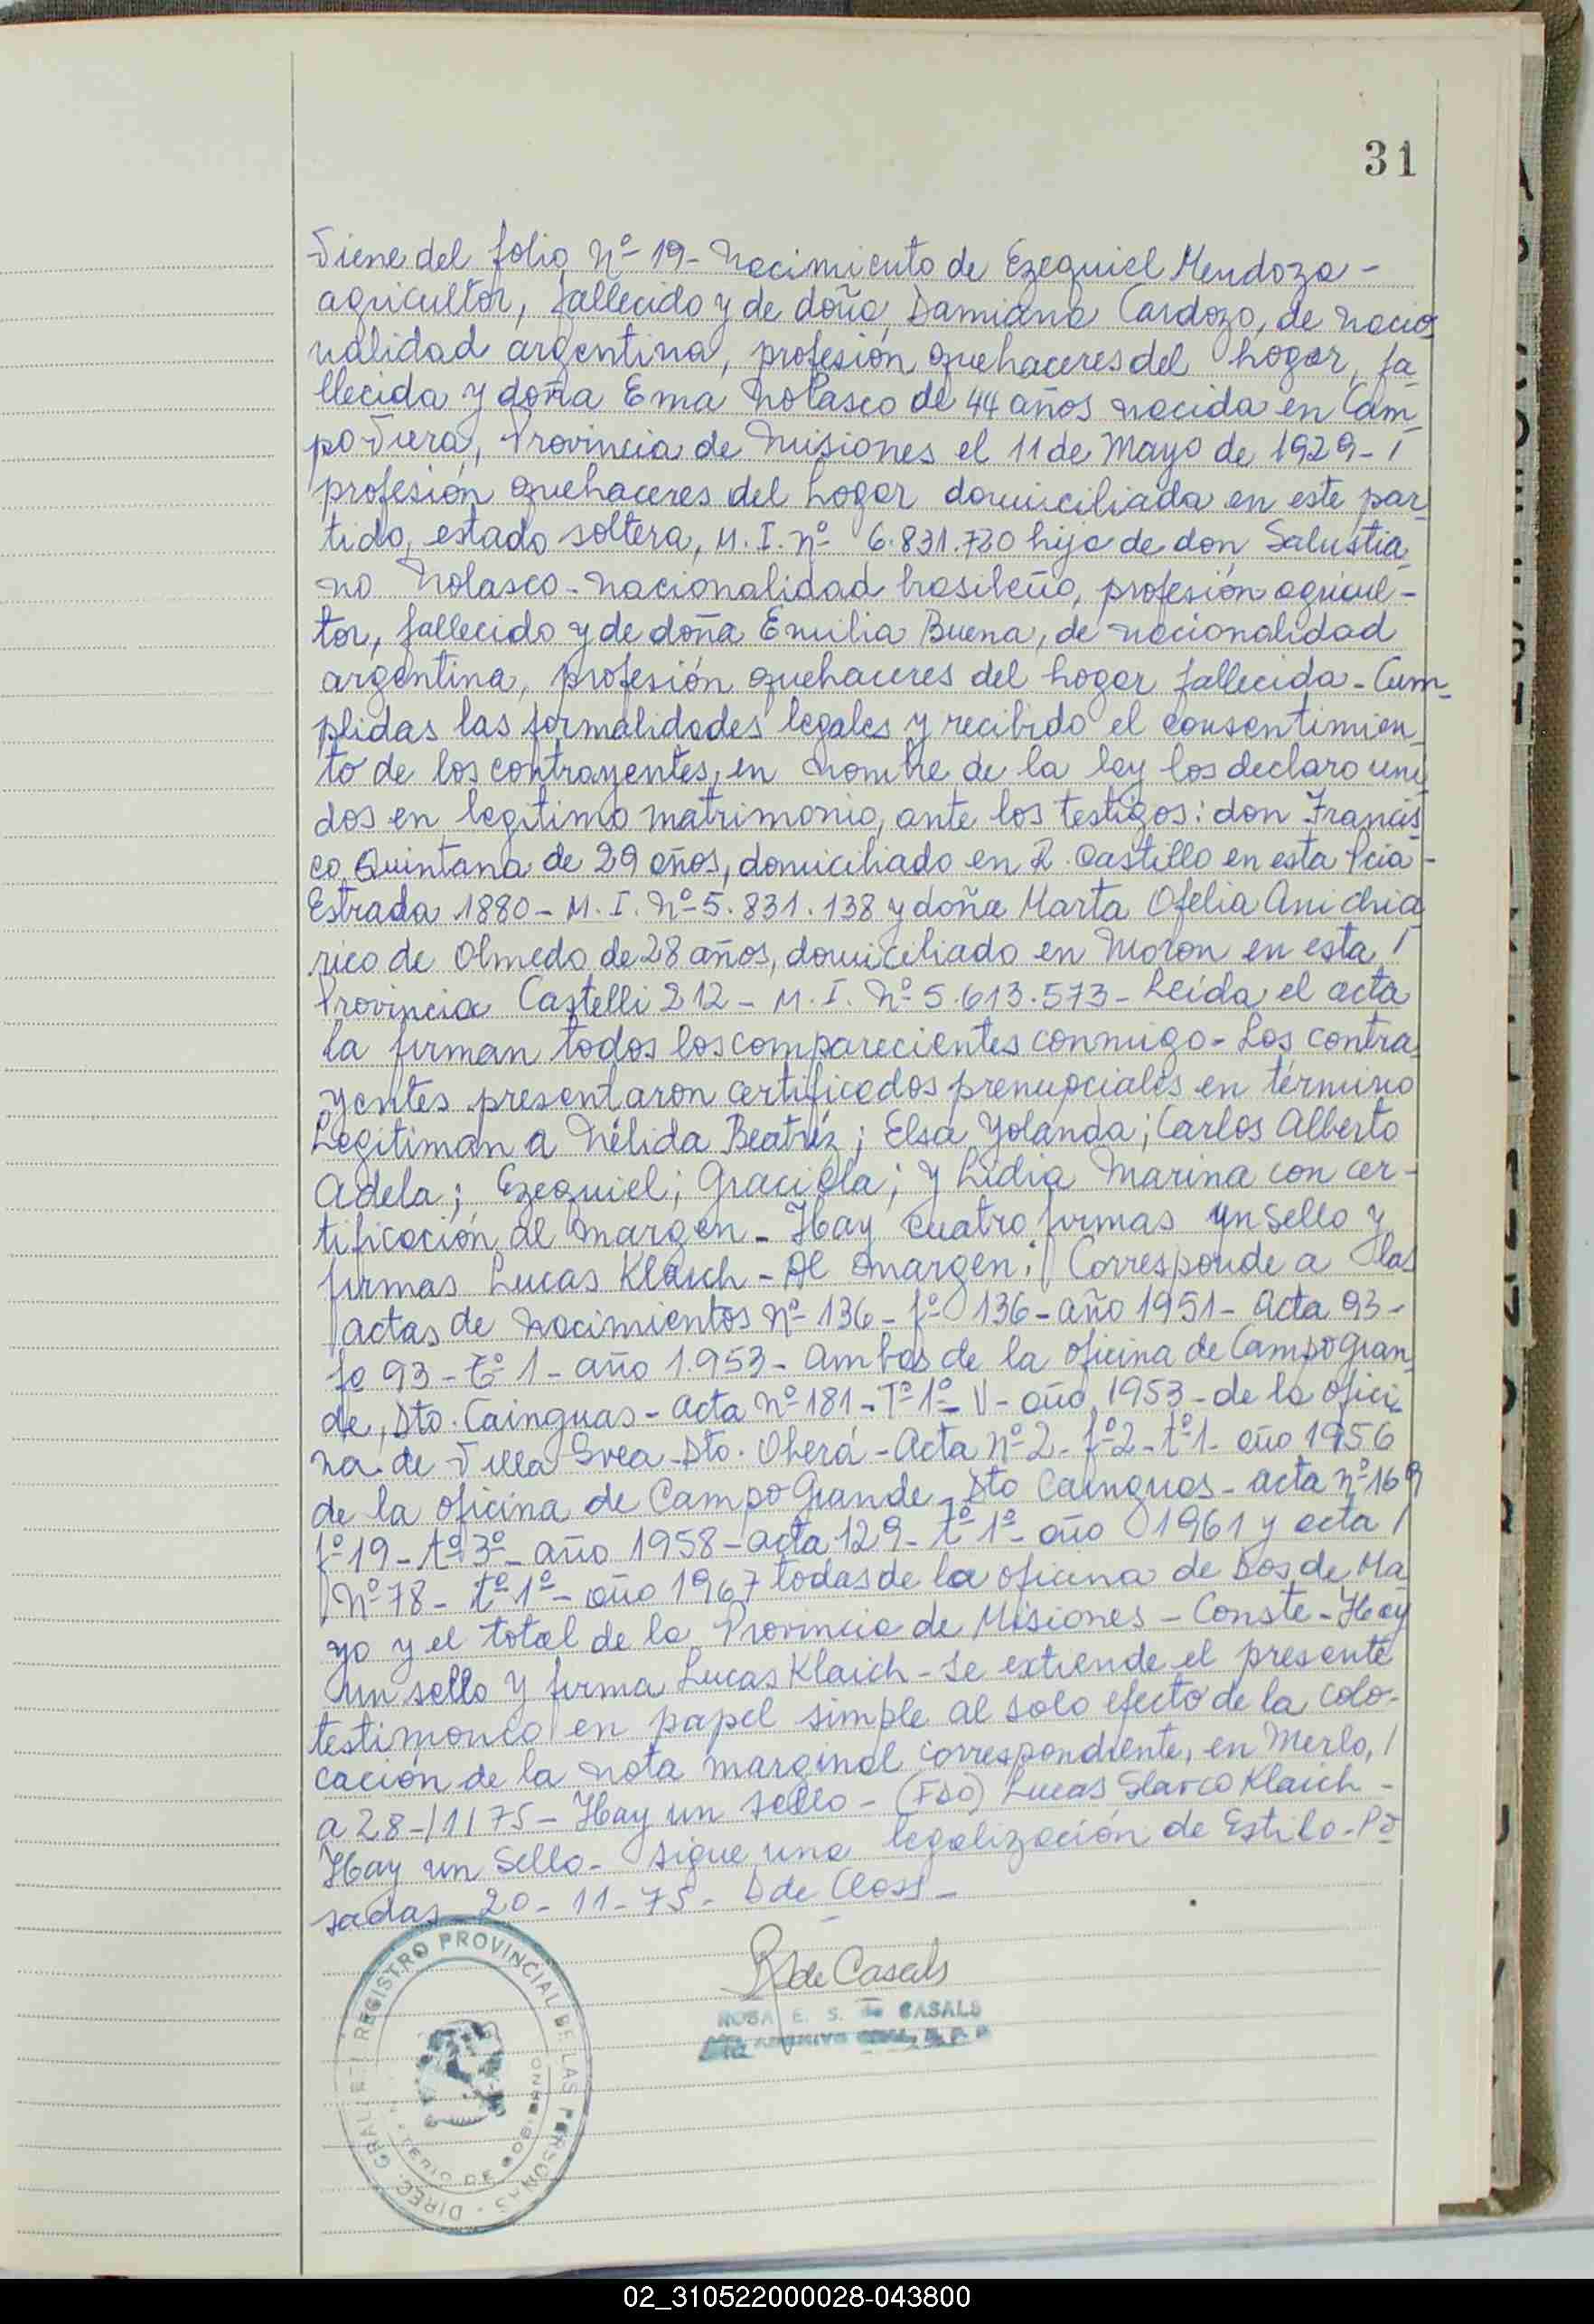 31
Viene del folio Nº 19- Nacimiento de Ezequiel Mendoza -
agricultor, fallecido y de doña Damiana Cardozo, de nacio
nalidad argentina, profesión quehaceres del hogar, fa_
llecida y doña Ema Nolasco de 44 años nacida en Cam_
po Viera, Provincia de Misiones el 11 de Mayo de 1929- /
profesión quehaceres del hogar domiciliada en este par_
tido, estado soltera, M. I. nº 6.831.720 hija de don Salustia_
no Nolasco - nacionalidad brasileño, profesión agricul-
tor, fallecido y de doña Emilia Buena, de nacionalidad
argentina, profesión quehaceres del hogar fallecida - Cum_
plidas las formalidades legales y recibido el consentimien_
to de los contrayentes, en nombre de la ley los declaro uni
dos en legítimo matrimonio, ante los testigos: don Francis_
co Quintana de 29 años, domiciliado en R. Castillo en esta Pcia -
Estrada 1880 - M. I. Nº 5.831.138 y doña Marta Ofelia
rico de Olmedo de 28 años, domiciliado en Moron en esta /
Provincia Castelli 212 - M. I. Nº 5.613.573 - Leída el acta
la firman todos los comparecientes conmigo - Los contra_
yentes presentaron certificados prenupciales en término
Legitiman a Nélida Beatríz; Elsa Yolanda; Carlos Alberto
Adela; Ezequiel; Graciela; y Lidia Marina con cer-
tificación al margen - Hay cuatro firmas un sello y
firmas Lucas Klaich - Al margen: Corresponde a las
actas de nacimientos Nº 136 - fº 136 - año 1951 - Acta 93 -
fo 93 - tº 1 - año 1.953 - Ambas de la oficina de Campo Gran_
de, Dto. Cainguas - acta Nº 181 - Tº 1º - V - año 1953 - de la ofici_
na de Villa Svea Dto. Oberá - Acta nº 2 - fº 2 - tº 1 - año 1956
de la oficina de Campo Grande - Dto Cainguas - acta nº 169
fº 19 - tº 3º - año 1958 - acta 129 - tº 1º - año 1961 y acta /
Nº 78 - tº 1º - año 1967 todas de la oficina de Dos de Ma
yo y el total de la Provincia de Misiones - Conste - Hay
un sello y firma Lucas Klaich - Se extiende el presente
testimonio en papel simple al solo efecto de la colo-
cación de la nota marginal correspondiente, en Merlo, /
a 28-/1175 - Hay un sello - (Fdo) Lucas Slavco Klaich -
Hay un Sello - sigue una legalización de Estilo - Po
sadas 20 - 11 - 75 - D de Closs -
R de Casals
ROSA E. S. de CASALS
DIREC. GRAL. DEL REGISTRO PROVINCIAL DE LAS PERSONAS
DE GOBIERNO
02_310522000028-043800